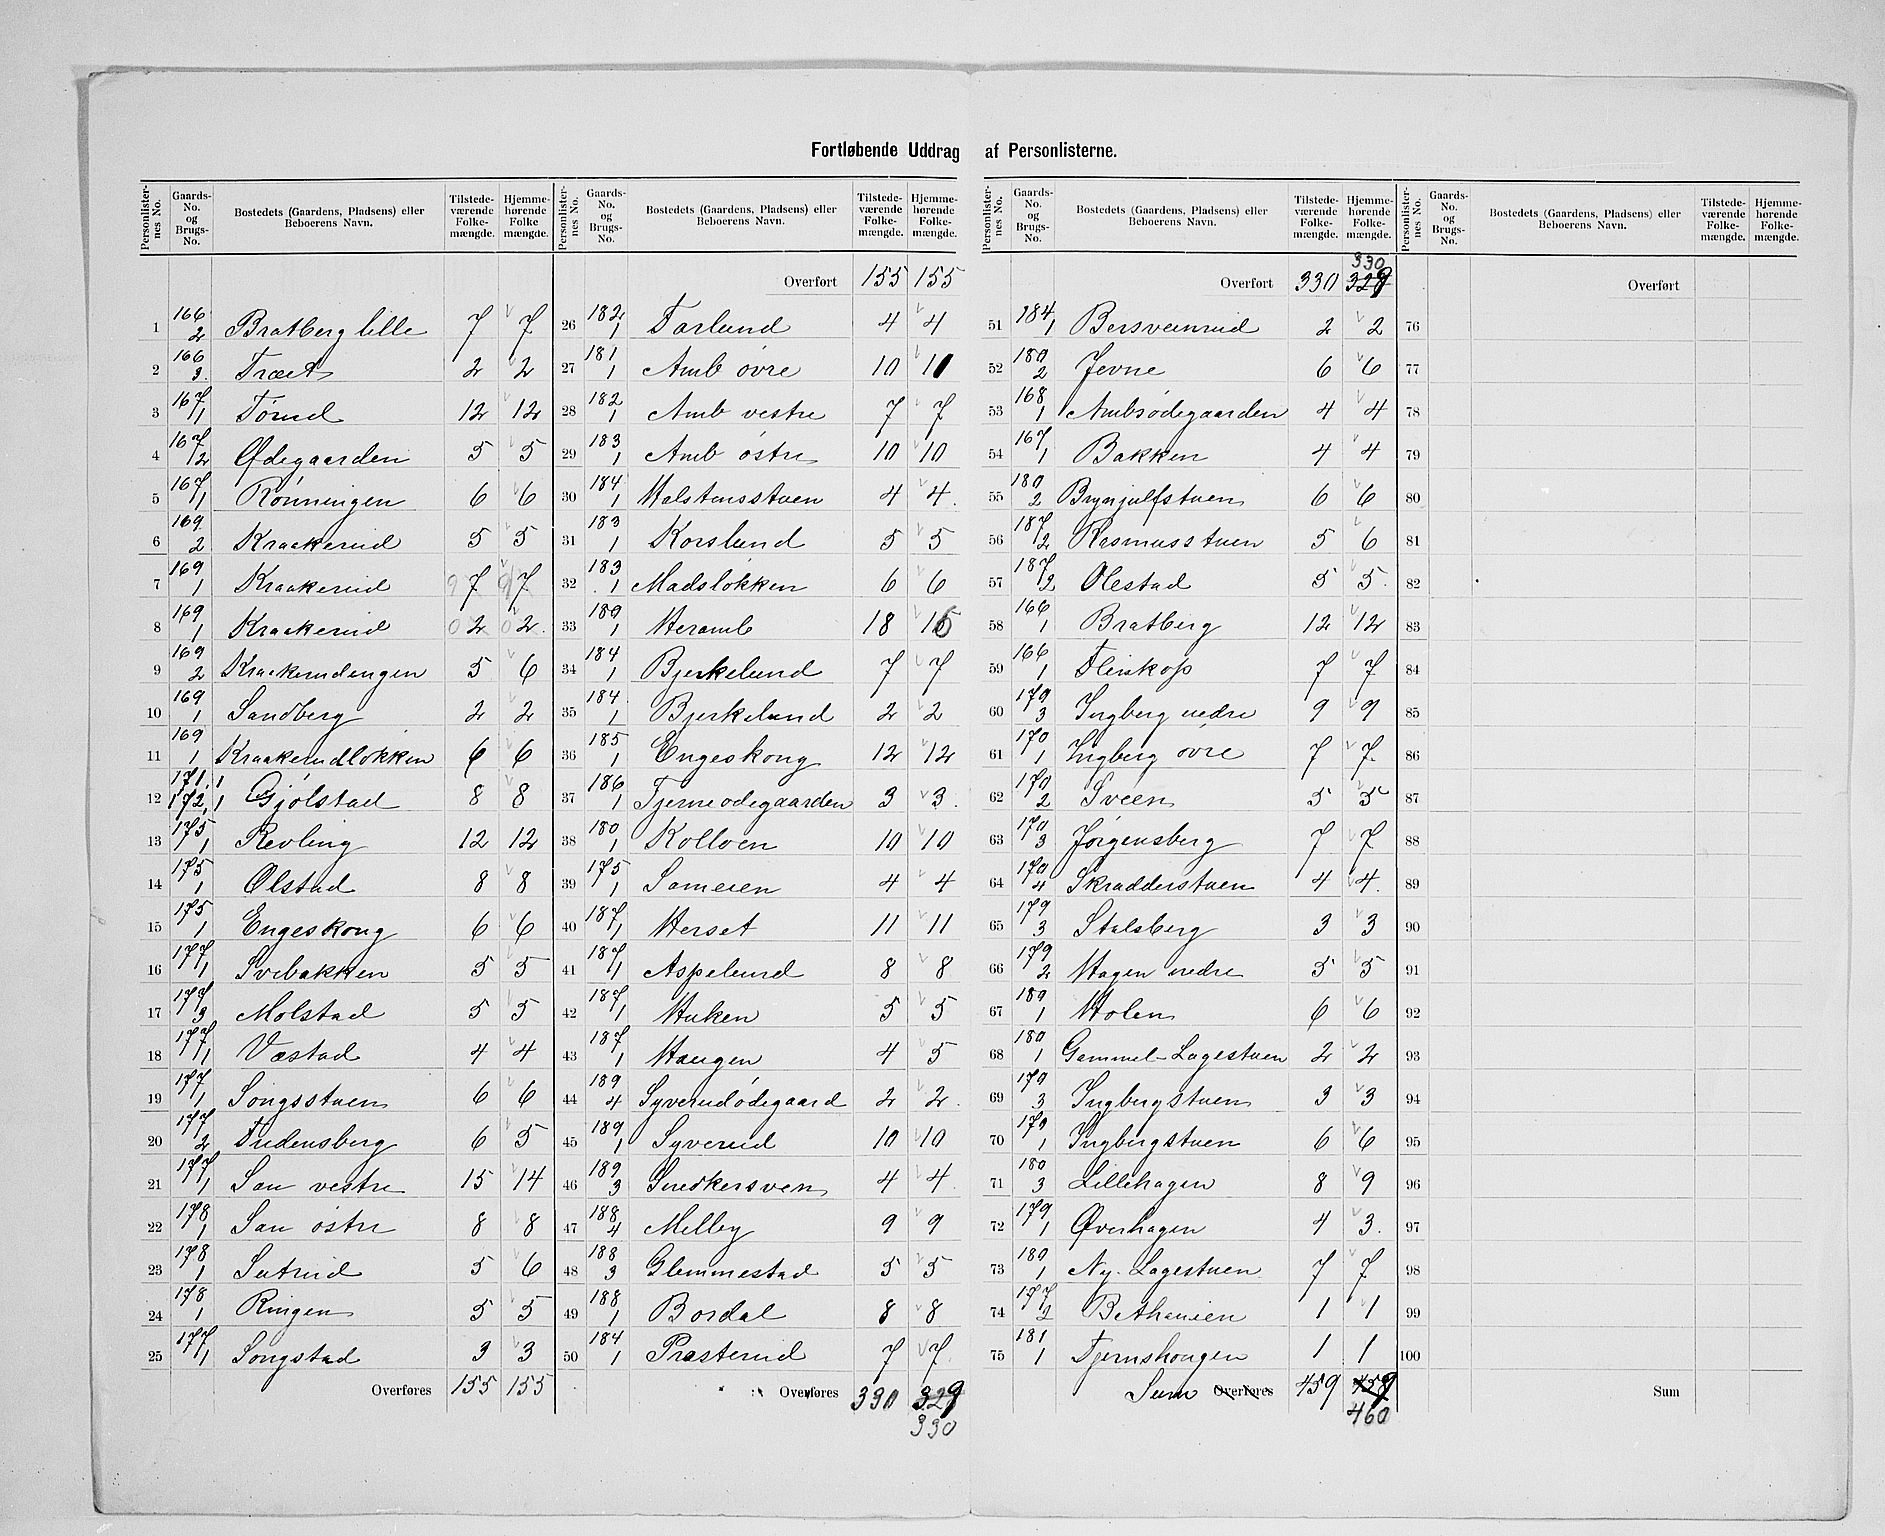 Fortløbende Uddrag af Personlisterne.
Personlister-nes No. | Gaards-No. og Brugs-No. | Bostedets (Gaardens, Pladsens) eller Beboerens Navn. | Tilstede-værende Folke-mængde. | Hjemme-hørende Folke mængde.
1 | 166/2 | Bratberg lille | 7 | 7
2 | 166/3. | Træet | 2 | 2
3 | 167/1 | Tørud | 12 | 12
4 | 167/2 | Ødegaarden | 5 | 5
5 | 167/1 | Rönningen | 6 | 6
6 | 169/2 | Kraakerud | 5 | 5
7 | 169/1 | Kraakerud | 7 | 7
8 | 169/1 | Kraakerud | 2 | 2
9 | 169/2 | Kraakerudengen | 5 | 6
10 | 169/1 | Sandberg | 2 | 2
11 | 169/1 | Kraakerudløkken | 6 | 6
12 | 171,1 172,1 | Gjölstad | 8 | 8
13 | 175/1 | Revling | 12 | 12
14 | 175/1 | Ølstad | 8 | 8
15 | 175/1 | Engeskong | 6 | 6
16 | 177/1 | Svebakken | 5 | 5
17 | 177/3 | Molstad | 5 | 5
18 | 177/1 | Væstad | 4 | 4
19 | 177/1 | Songsstuen | 6 | 6
20 | 177/2 | Fredensberg | 6 | 5
21 | 177/1 | San vestre | 15 | 14
22 | 178/1 | San östre | 8 | 8
23 | 178/1 | Sætrud | 5 | 6
24 | 178/1 | Ringen | 5 | 5
25 | 177/1 | Songstad | 3 | 3
Overføres 155 155
Personlister-nes No. | Gaards-No. og Brugs-No. | Bostedets (Gaardens, Pladsens) eller Beboerens Navn. | Tilstede-værende Folke-mængde. | Hjemme-hørende Folke-mængde.
Overført 155 155
26 | 182/1 | Farlund | 4 | 4
27 | 181/1 | Amb övre | 10 | 10
28 | 182/1 | Amb vestre | 7 | 7
29 | 183/1 | Amb östre | 10 | 10
30 | 184/1 | Halstensstuen | 4 | 4.
31 | 183/1 | Korslund | 5 | 5
32 | 183/1 | Madslökken | 6 | 6
33 | 180/1 | Heramb | 18 | 16
34 | 184/1 | Bjerkelund | 7 | 7
35 | 184/1 | Bjerkelund | 2 | 2
36 | 185/1 | Engeskong | 12 | 12
37 | 186/1 | Tjerneödegaarden | 3 | 3.
38 | 180/1 | Kolloen | 10 | 10
39 | 175/1 | Sameien | 4 | 4
40 | 187/1 | Herset | 11 | 11
41 | 187/1 | Aspelund | 8 | 8
42 | 187/1 | Haken | 5 | 5
43 | 187/1 | Haugen | 4 | 5
44 | 189/4 | Syverudödegaard | 2 | 2.
45 | 189/1 | Syverud | 10 | 10
46 | 189/3 | Snedkersven | 4 | 4.
47 | 188/4 | Melby | 9 | 9
48 | 188/3 | Glemmestad | 5 | 5
49 | 188/1 | Bordal | 8 | 8
50 | 184/1 | Præsterud | 7 | 7.
Overføres 330 329
330
Personlister-nes No. | Gaards-No. og Brugs-No. | Bostedets (Gaardens, Pladsens) eller Beboerens Navn. | Tilstede-værende Folke-mængde. | Hjemme-hørende Folke-mængde.
330
Overført 330 329
51 | 184/1 | Bersveinrud | 2 | 2
52 | 180/2 | Jevne | 6 | 6
53 | 168/1 | Ambsödegaarden | 4 | 4
54 | 167/1 | Bakken | 4 | 4
55 | 180/2 | Brynjulfstuen | 6 | 6
56 | 187/2 | Rasmusstuen | 5 | 6
57 | 187/2 | Olestad | 5 | 5.
58 | 166/1 | Bratberg | 12 | 12
59 | 166/1 | Fleiskop | 7 | 7
60 | 170/3 | Ingberg nedre | 9 | 9
61 | 170/1 | Ingberg övre | 7 | 7.
62 | 170/2 | Sveen | 5 | 5
63 | 170/3 | Jørgensberg | 7 | 7
64 | 170/4 | Skradderstuen | 4 | 4.
65 | 179/3 | Stalsberg | 3 | 3
66 | 179/2 | Hagen nedre | 5 | 5
67 | 180/1 | Holen | 6 | 6
68 | 180/1 | Gammel-Lagestuen | 2 | 2
69 | 170/3 | Ingbergstuen | 3 | 3
70 | 170/1 | Ingbergstuen | 6 | 6
71 | 180/3 | Lillehagen | 8 | 9
72 | 179/1 | Øverhagen | 4 | 3.
73 | 180/1 | Ny-Lagestuen | 7 | 7
74 | 177/2 | Bethanien | 1 | 1
75 | 181/1 | Tjernshougen | 1 | 1
Sum Overføres 459 459
460
Personlister-nes No. | Gaards-No. og Brugs-No. | Bostedets (Gaardens, Pladsens) eller Beboerens Navn. | Tilstede-værende Folke-mængde. | Hjemme-hørende Folke-mængde.
Overført
76
77
78
79
80
81
82
83
84
85
86
87
88
89
90
91
92
93
94
95
96
97
98
99
100
Sum